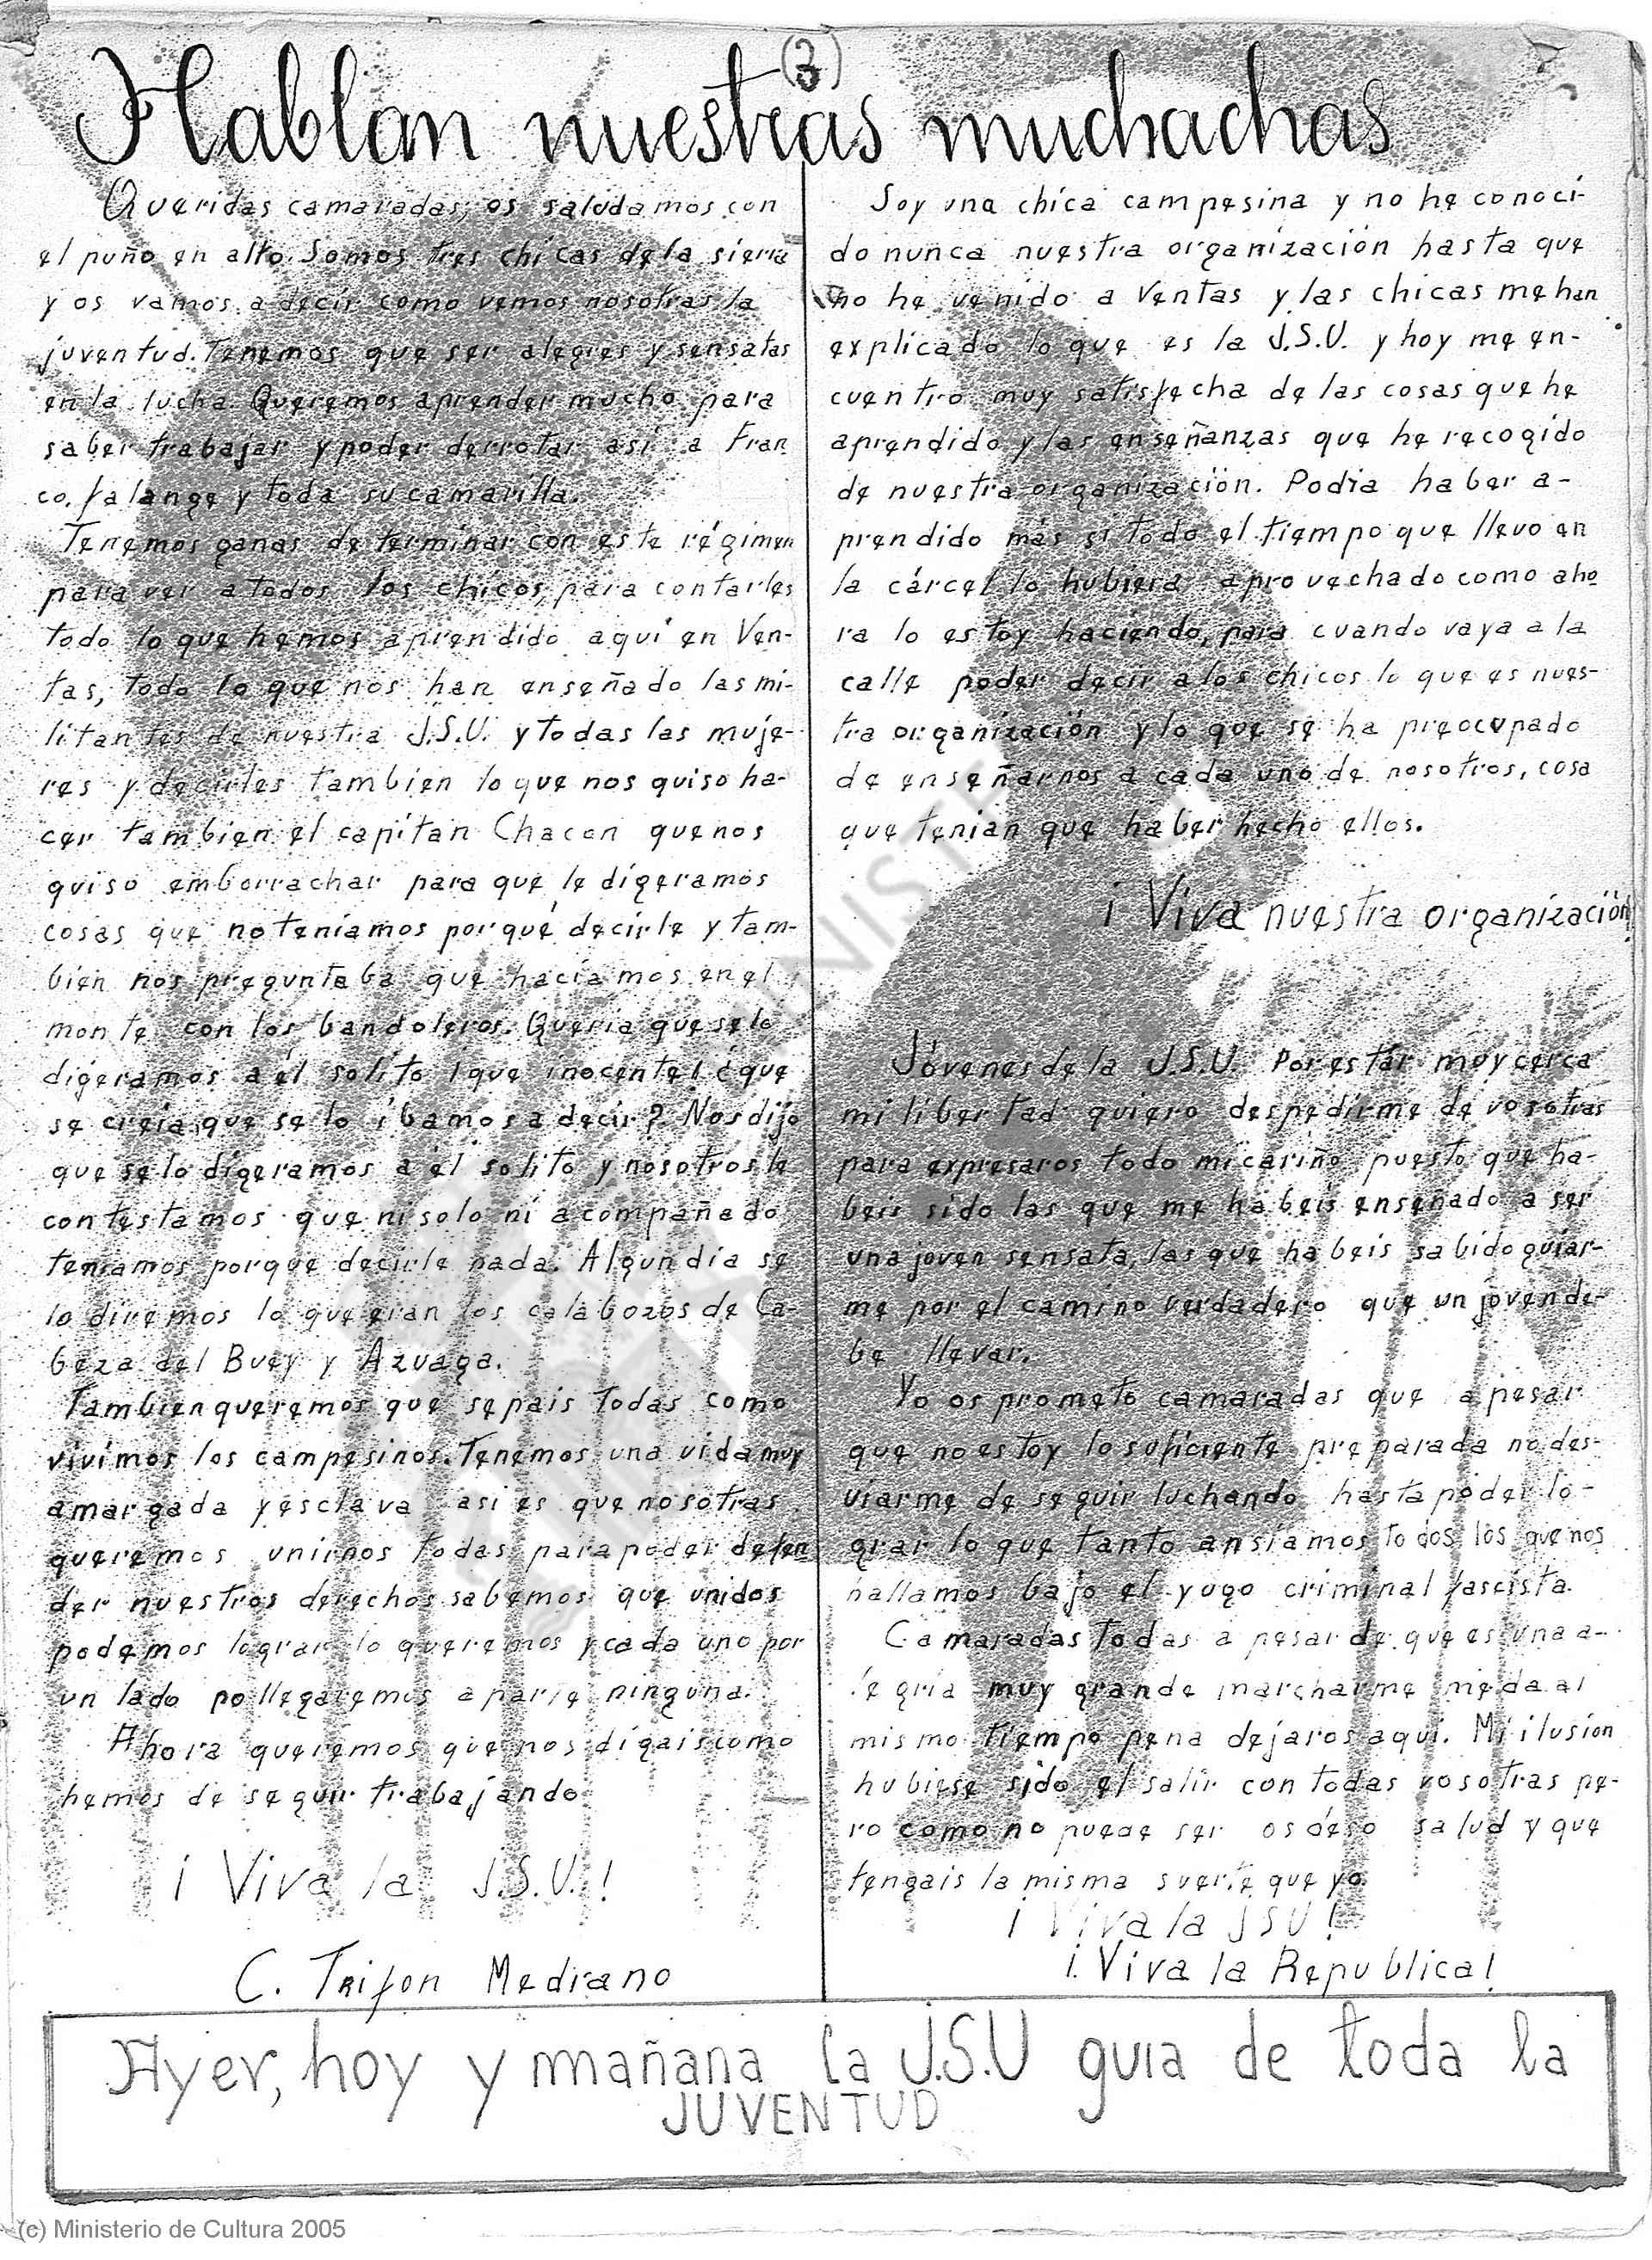 (3)
Hablan nuestras muchachas
Queridas camaradas, os saludamos con
el puño en alto. Somos tres chicas de la sierra
y os vamos a decir como vemos nosotras la
juventud. Tenemos que ser alegres y sensatas
en la lucha. Queremos aprender mucho para
saber trabajar y poder derrotar así a Fran
co, falange y toda su camarilla.
Tenemos ganas de terminar con este régimen
para ver a todos los chicos, para contarles
todo lo que hemos aprendido aquí en Ven-
tas, todo lo que nos han enseñado las mi-
litantes de nuestra J.S.U. y todas las muje-
res y decirles tambien lo que nos quiso ha-
cer tambien el capitan Chacon que nos
quiso emborrachar para que le digeramos
cosas que no teníamos por qué decirle y tam-
bien nos preguntaba que hacíamos en el
monte con los bandoleros. Quería que se lo
digeramos a él solito ¡que inocente! ¿que
se creía que se lo íbamos a decir? Nos dijo
que se lo digeramos a él solito y nosotros le
contestamos que ni solo ni acompañado
teníamos porque decirle nada. Algun día se
lo diremos lo que eran los calabozos de Ca-
beza del Buey y Azuaga.
Tambien queremos que sepais todas como
vivimos los campesinos. Tenemos una vida muy
amargada y esclava asi es que nosotras
queremos unirnos todas para poder defen
der nuestros derechos sabemos que unidos
podemos lograr lo queremos y cada uno por
un lado no llegaremos a parte ninguna.
Ahora queremos que nos digais como
hemos de seguir trabajando
¡Viva la J.S.U.!
C. Trifon Medrano
Soy una chica campesina y no he conoci-
do nunca nuestra organización hasta que
no he venido a Ventas y las chicas me han
explicado lo que es la J.S.U. y hoy me en-
cuentro muy satisfecha de las cosas que he
aprendido y las enseñanzas que he recogido
de nuestra organización. Podia haber a-
prendido más si todo el tiempo que llevo en
la cárcel lo hubiera aprovechado como aho
ra lo estoy haciendo, para cuando vaya a la
calle poder decir a los chicos lo que es nues-
tra organización y lo que se ha preocupado
de enseñarnos a cada uno de nosotros, cosa
que tenian que haber hecho ellos.
¡Viva nuestra organización!
Jóvenes de la J.S.U. Por estar muy cerca
mi libertad quiero despedirme de vosotras
para expresaros todo mi cariño puesto que ha-
beis sido las que me habeis enseñado a ser
una joven sensata, las que habeis sabido guiar-
me por el camino verdadero que un joven de-
be llevar.
Yo os prometo camaradas que a pesar
que no estoy lo suficiente preparada no des-
viarme de seguir luchando hasta poder lo-
grar lo que tanto ansíamos todos los que nos
hallamos bajo el yugo criminal fascista.
Camaradas todas a pesar de que es una a-
legria muy grande marcharme me da al
mismo tiempo pena dejaros aqui. Mi ilusion
hubiese sido el salir con todas vosotras pe-
ro como no puede ser os deseo salud y que
tengais la misma suerte que yo.
¡Viva la JSU!
¡Viva la Republica!
Ayer, hoy y mañana la J.S.U guia de toda la
JUVENTUD
(c) Ministerio de Cultura 2005